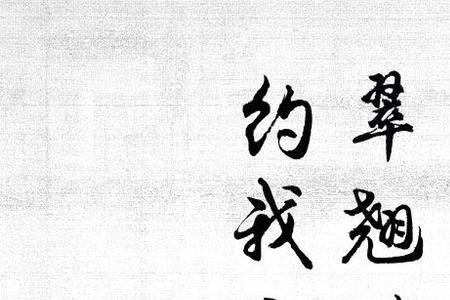 翠翘
约我